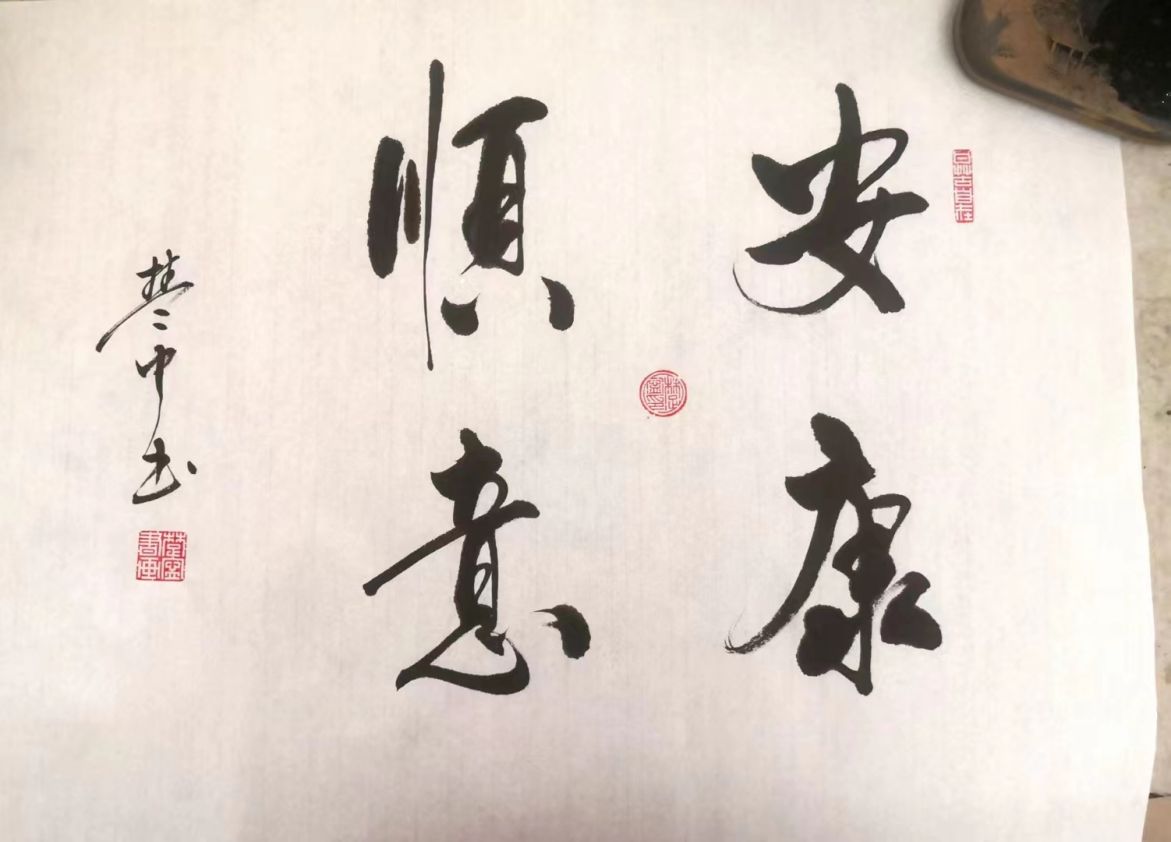 安康
順意
中书